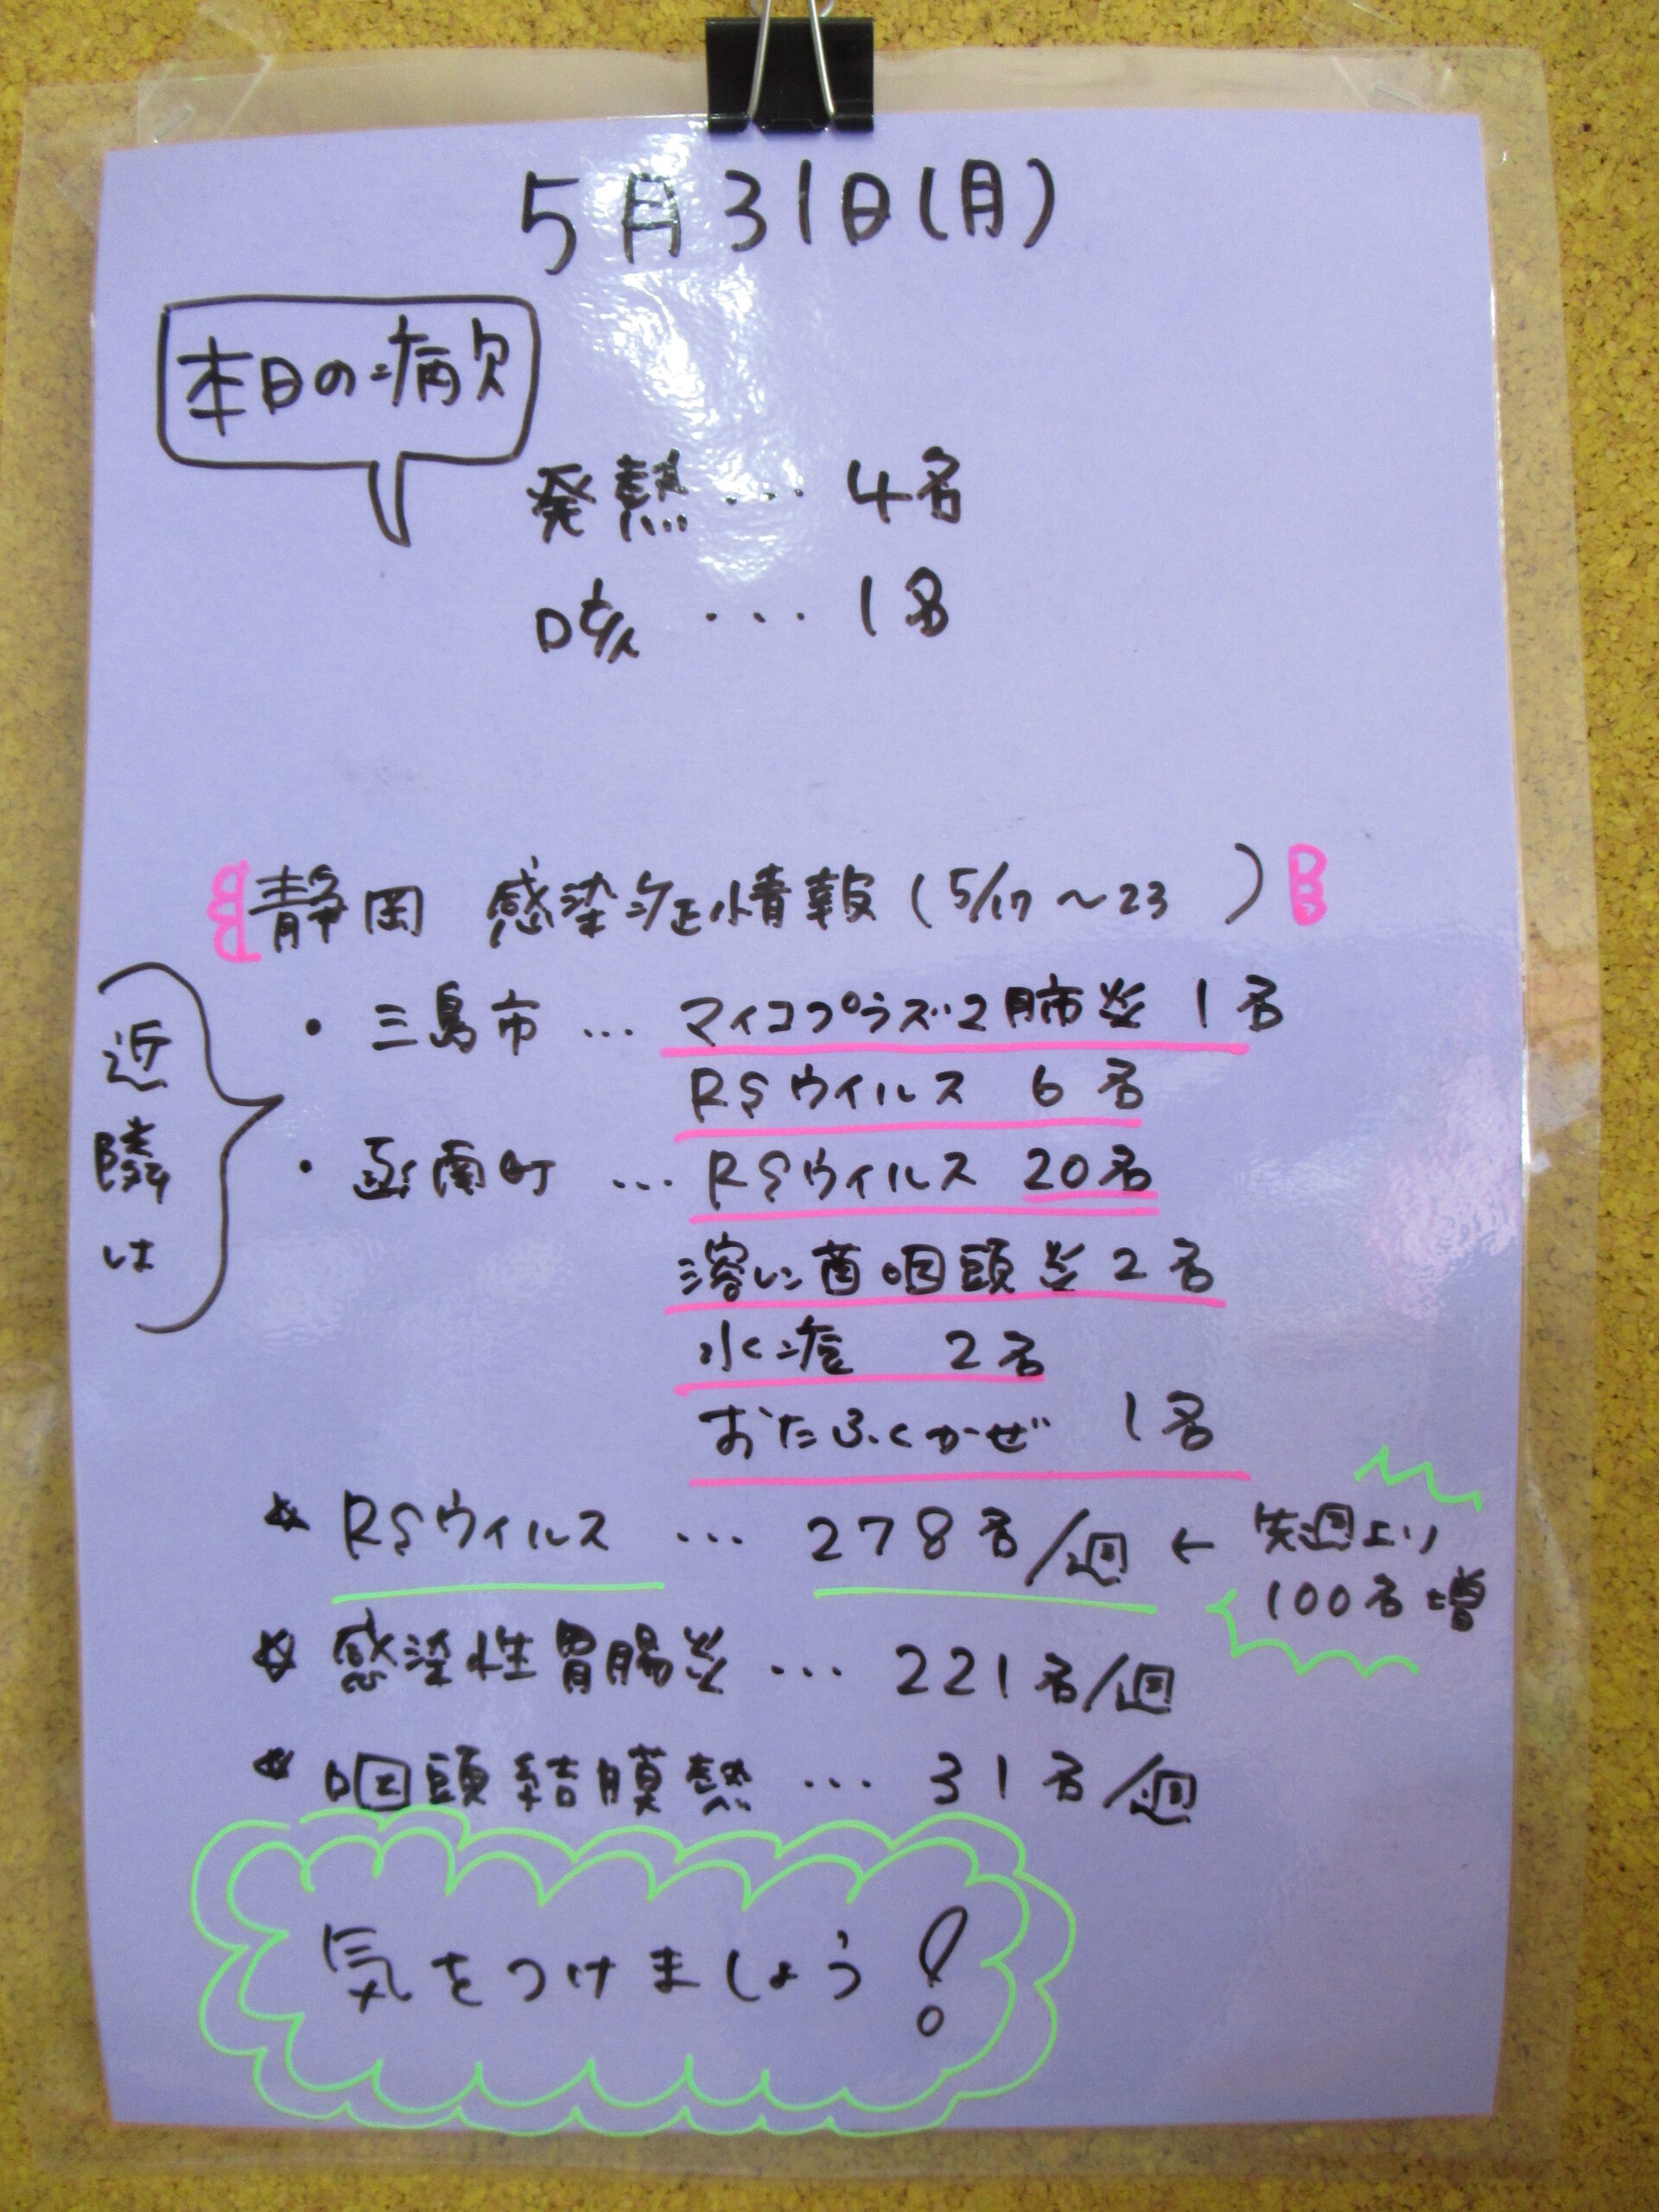 5月31日(月)
本日の病欠
発熱… 4名
咳 … 1名
静岡 感染症情報 (5/17 ~23 )
近隣は
・三島市 … マイコプラズマ肺炎 1名
RSウイルス 6名
・函南町 … RSウイルス 20名
溶レン菌咽頭炎 2名
水痘 2名
おたふくかぜ 1名
☆ RSウイルス … 278名/週 ← 先週より
100名増
☆ 感染性胃腸炎 … 221名/週
☆ 咽頭結膜熱 … 31名/週
気をつけましょう!